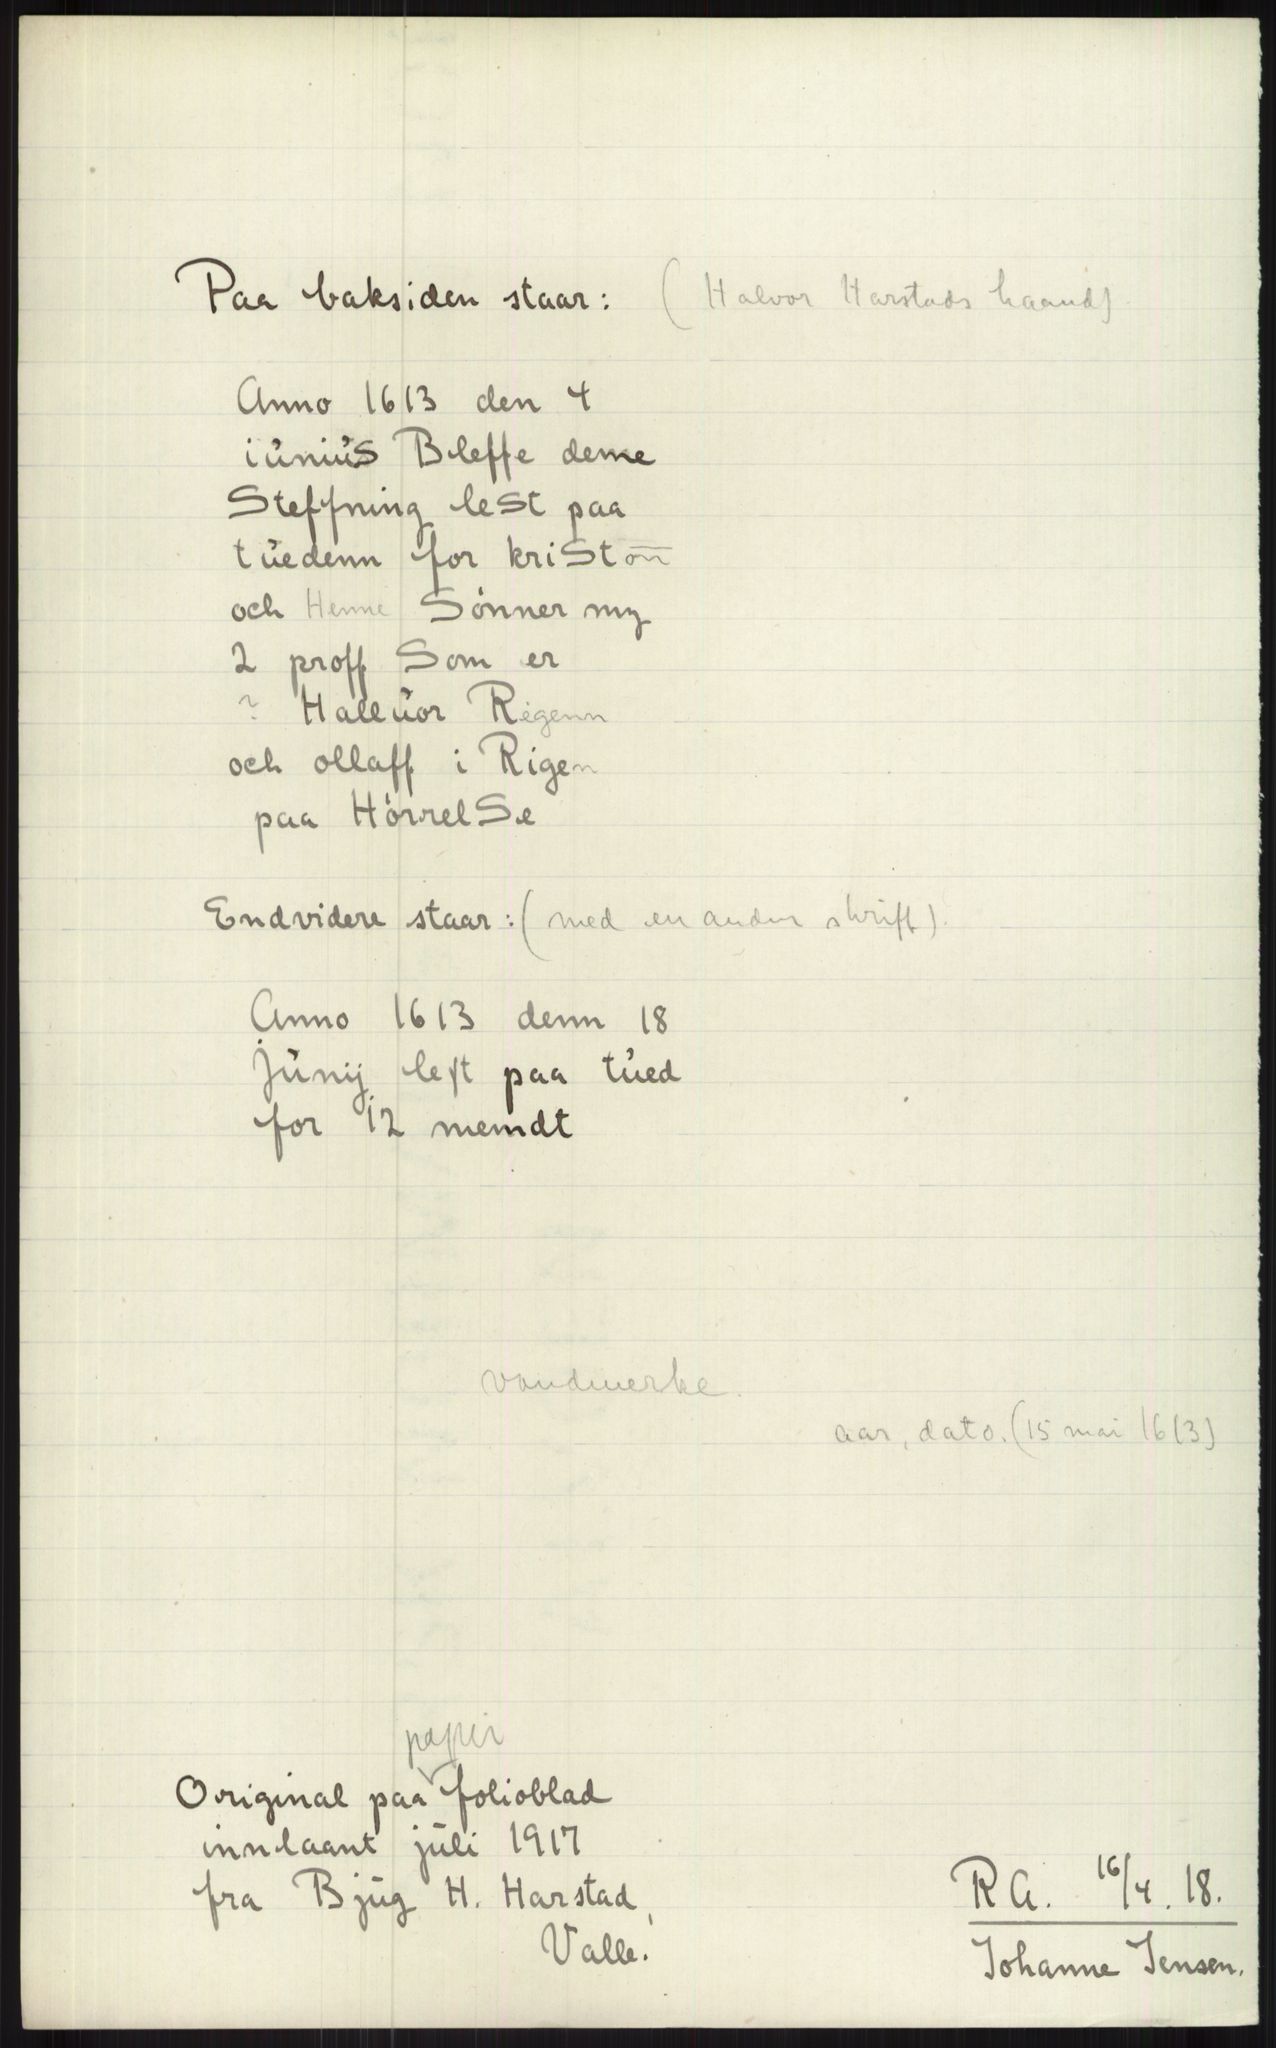 Paa baksiden staar: (Halvor Harstads haand)
Anno 1613 den 4
iúniús Bleffe deme
Steffning leSt paa
túedenn for kriStoñ
och Henne Sönner mz
2 proff Som er
? Hallúor Rigenn
och ollaff i Rigen
paa HörrelSe
Endvidere staar: (med en anden skrift).
Anno 1613 denn 18
júnij lest paa túed
for 12 memdt
vandmerke.
aar, dato. (15 mai 1613)
papir
Original paa folioblad
innlaant júli 1917
fra Bjúg H. Harstad,
Valle.
R A. 16/4. 18.
Johanne Jensen.